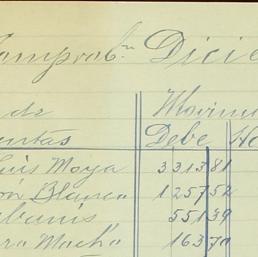 Comprobn Dicie
de Movim
entas Debe Ha
Luis Moya 3313 81
ón Blanco 1257 52
ibanis 551 39
ro Macho 163 70